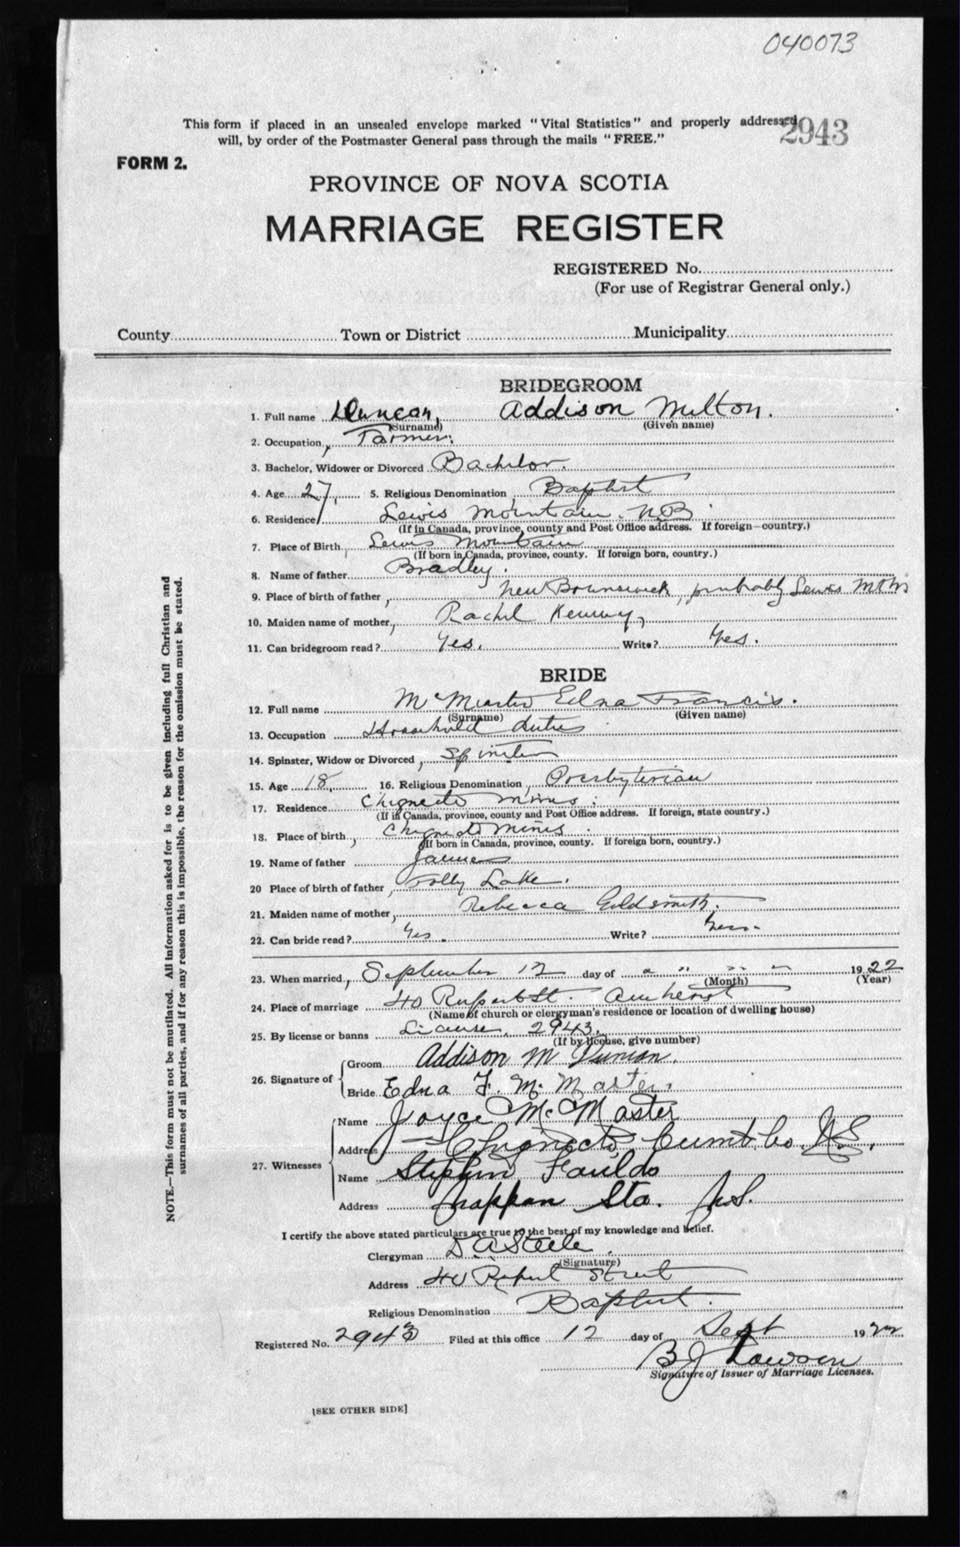 040073
This form if placed in an unsealed envelope marked "Vital Statistics" and properly addressed
2943
will, by order of the Postmaster General pass through the mails "FREE."
FORM 2.
PROVINCE OF NOVA SCOTIA
MARRIAGE REGISTER
REGISTERED No.
(For use of Registrar General only.)
County Town or District Municipality
BRIDEGROOM
1. Full name Duncan, Addison Milton.
(Surname) (Given name)
2. Occupation, Farmer.
3. Bachelor, Widower or Divorced Bachelor.
4. Age 27, 5. Religious Denomination Baptist
6. Residence Lewis Mountain. N.B.
(If in Canada, province, county and Post Office address. If foreign—country.)
7. Place of Birth, Lewis Mountain
(If born in Canada, province, county. If foreign born, country.)
8. Name of father Bradley.
9. Place of birth of father, New Brunswick, probably Lewis Mtn
10. Maiden name of mother, Rachel Kenney,
11. Can bridegroom read? Yes. Write? Yes.
BRIDE
12. Full name McMaster Edna Francis.
(Surname) (Given name)
13. Occupation Household duties
14. Spinster, Widow or Divorced, Spinster
15. Age 18, 16. Religious Denomination, Presbyterian
17. Residence Chignecto Mines.
(If in Canada, province, county and Post Office address. If foreign, state country.)
18. Place of birth, Chignecto Mines.
(If born in Canada, province, county. If foreign born, country.)
19. Name of father James
20 Place of birth of father, Folly Lake.
21. Maiden name of mother, Rebecca Goldsmith.
22. Can bride read? Yes. Write? Yes.
23. When married, September 12 day of " " " " 1922
(Month) (Year)
24. Place of marriage 40 Rupert St. Amherst
(Name of church or clergyman's residence or location of dwelling house)
25. By license or banns License. 2943.
(If by license, give number)
26. Signature of
Groom Addison M Duncan.
Bride Edna F. McMaster.
27. Witnesses
Name Joyce McMaster
Address Chignecto Cumb Co. N.S.
Name Stephen Faulds
Address Nappan Sta. N.S.
I certify the above stated particulars are true to the best of my knowledge and belief.
Clergyman D A Steele.
(Signature)
Address 40 Rupert Street
Religious Denomination Baptist.
Registered No. 2943 Filed at this office 12 day of Sept 1922
B J Lawson
Signature of Issuer of Marriage Licenses.
[SEE OTHER SIDE]
NOTE.—This form must not be mutilated. All Information asked for is to be given including full Christian and
surnames of all parties, and if for any reason this is impossible, the reason for the omission must be stated.